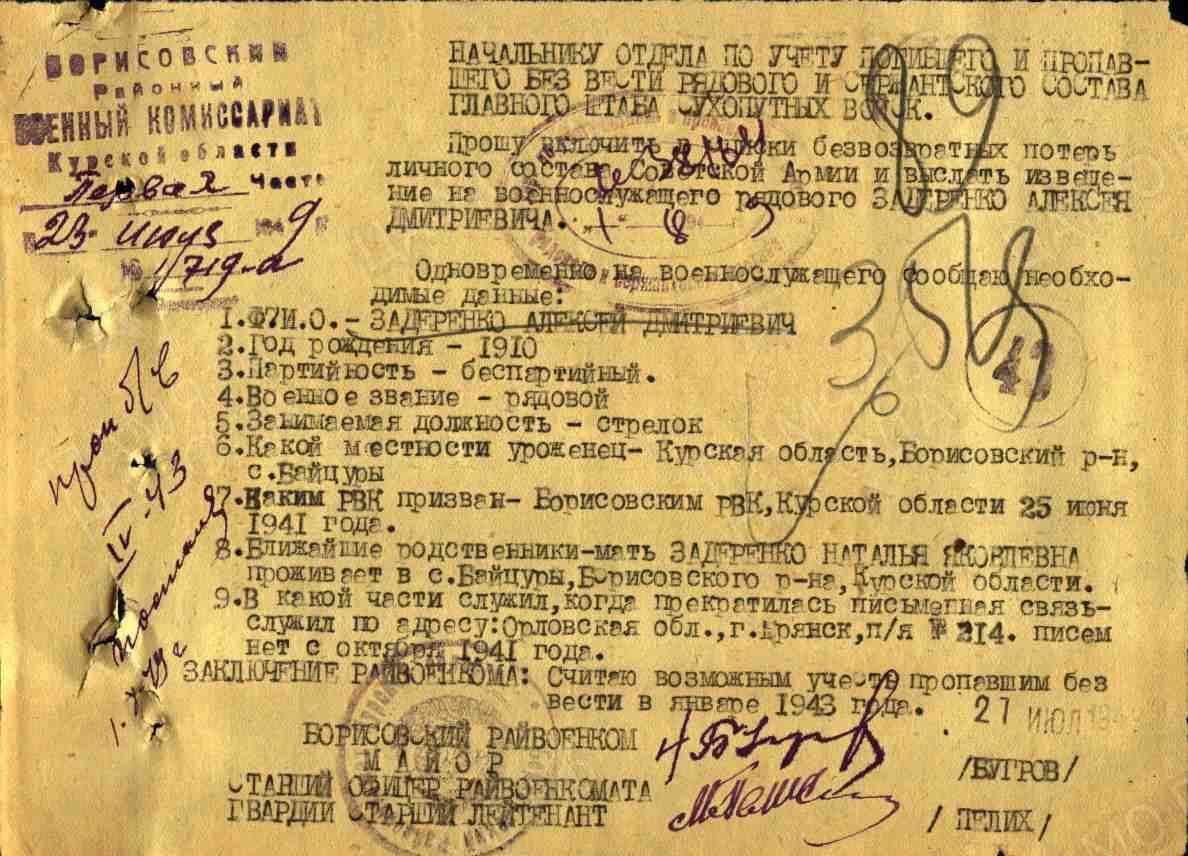 БОРИСОВСКИЙ
Районный
ВОЕННЫЙ КОМИССАРИАТ
Курской области
Первая Часть
23 194 9
№ 1/719-а
НАЧАЛЬНИКУ ОТДЕЛА ПО УЧЕТУ ПОГИБШЕГО И ПРОПАВ-
ШЕГО БЕЗ ВЕСТИ РЯДОВОГО И СЕРЖАНТСКОГО СОСТАВА
ГЛАВНОГО ШТАБА СУХОПУТНЫХ ВОЙСК.
Прошу включить в списки безвозвратных потерь
личного состава Советской Армии и выслать извеще-
ние на военнослужащего рядового ЗАДЕРЕНКО АЛЕКСЕЯ
ДМИТРИЕВИЧА.
Одновременно на военнослужащего сообщаю необхо-
димые данные:
1.Ф?И.О.- ЗАДЕРЕНКО АЛЕКСЕЙ ДМИТРИЕВИЧ
2.Год рождения - 1910
3.Партийность - беспартийный.
4.Военное звание - рядовой
5.Занимаемая должность - стрелок
6.Какой местности уроженец- Курская область,Борисовский р-н,
с.Байцуры
7.Каким РВК призван- Борисовским РВК,Курской области 25 июня
1941 года.
8.Ближайшие родственники-мать ЗАДЕРЕНКО НАТАЛЬЯ ЯКОВЛЕВНА
проживает в с.Байцуры,Борисовского р-на,Курской области.
9.В какой части служил,когда прекратилась письменная связь-
служил по адресу:Орловская обл.,г.Брянск,п/я № 214. писем
нет с октября 1941 года.
ЗАКЛЮЧЕНИЕ РАЙВОЕНКОМА: Считаю возможным учесть пропавшим без
вести в январе 1943 года.
27 ИЮЛ 194
БОРИСОВСКИЙ РАЙВОЕНКОМ
МАЙОР /БУГРОВ/
СТАРШИЙ ОФИЦЕР РАЙВОЕНКОМАТА
ГВАРДИИ СТАРШИЙ ЛЕЙТЕНАНТ / ПЕЛИХ/
проп б/в
IV-43
89
358
43